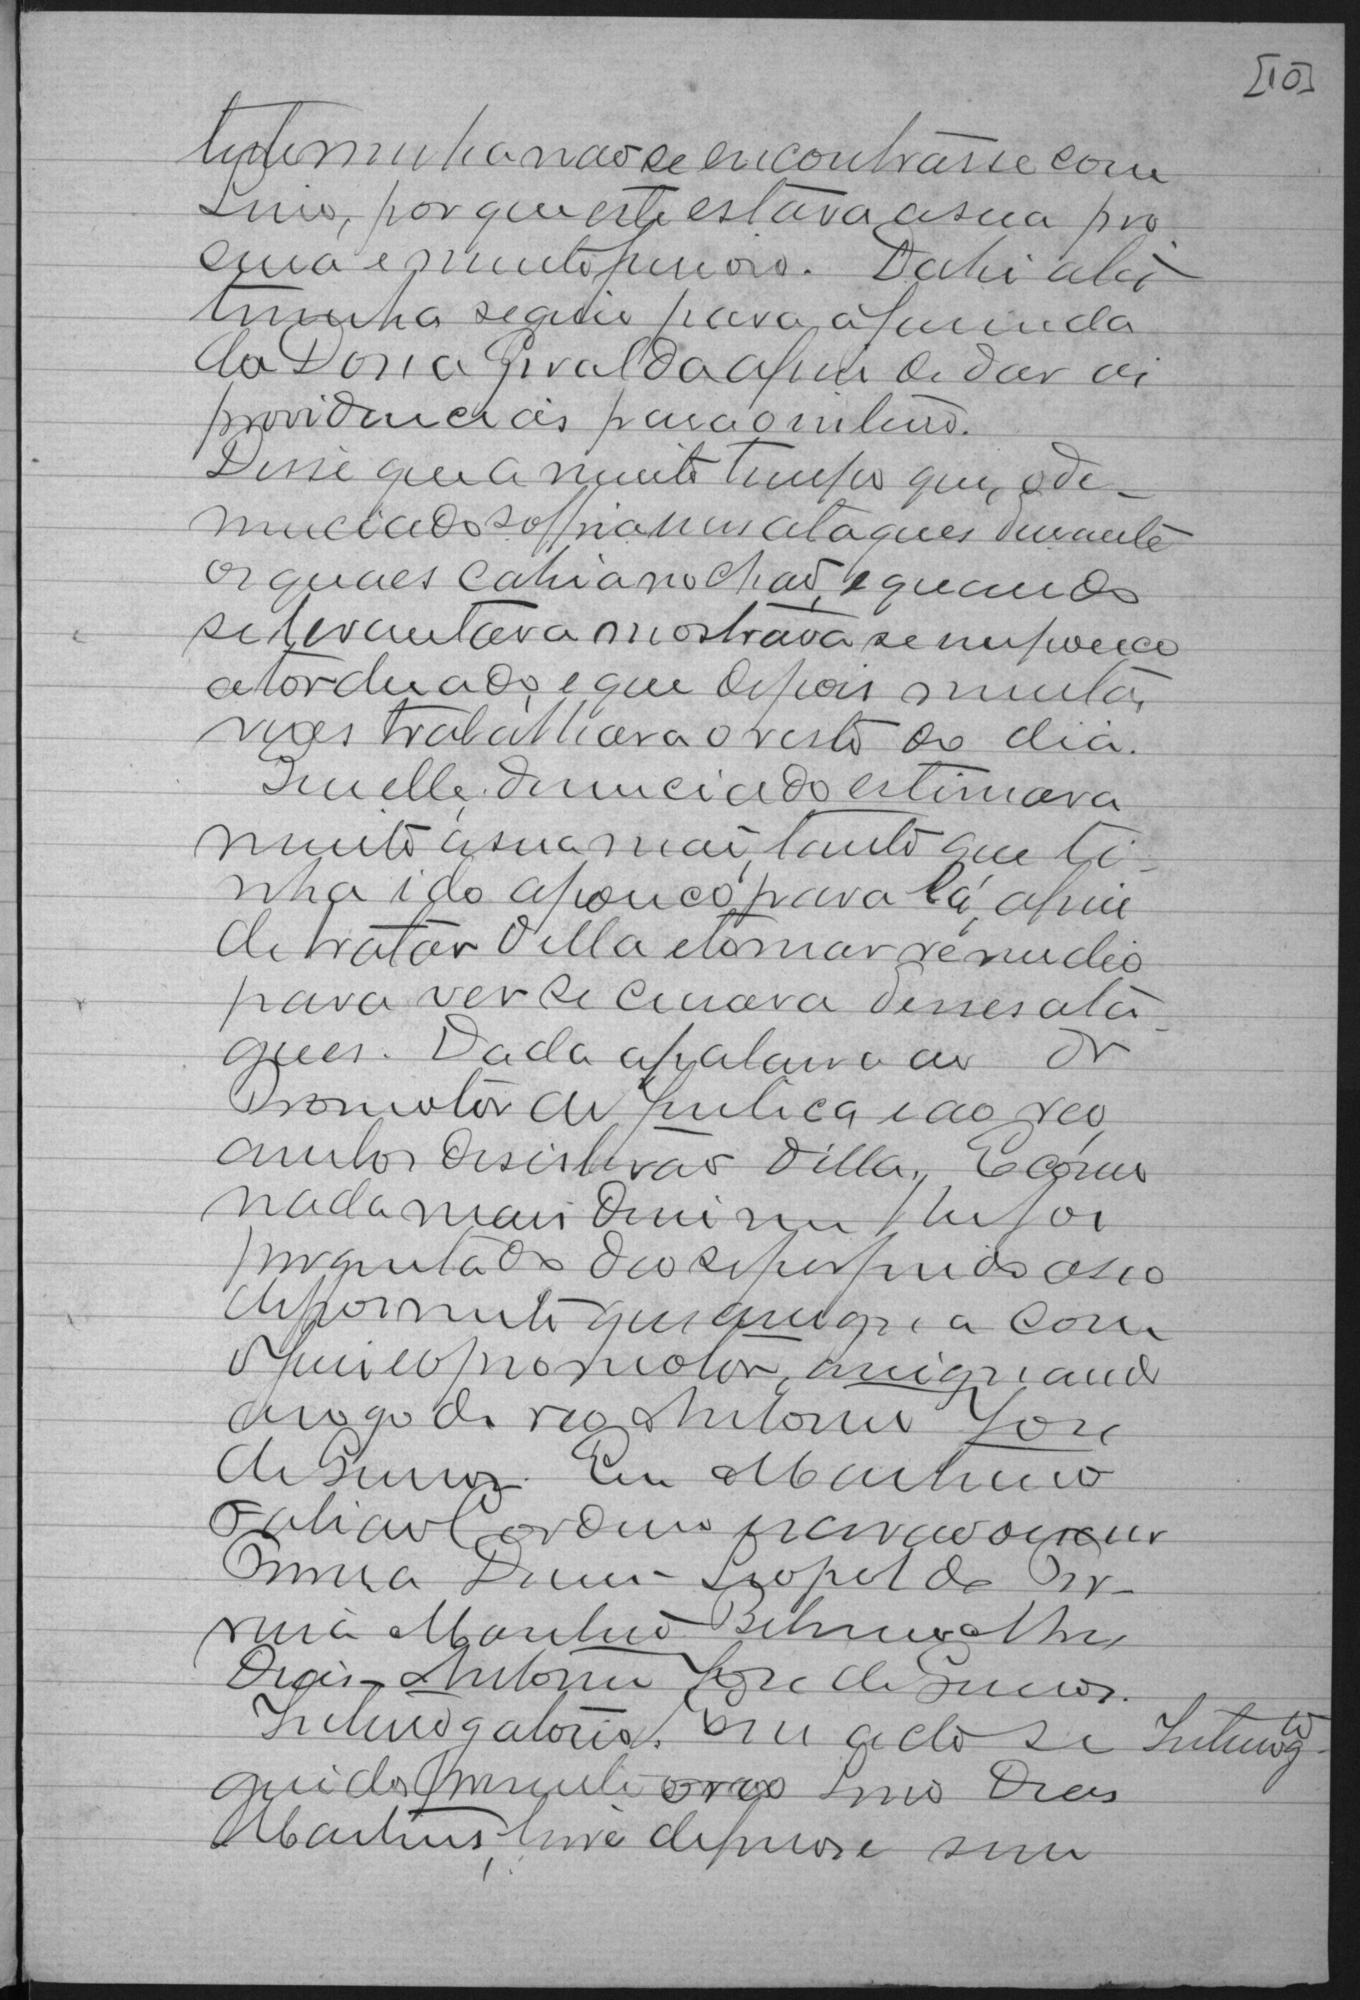 [10]
testemunha não se encontrasse com
Lino, por que este estava a sua pro
cura e muito furioso. Dahi a tes
timunha seguio para a fazenda
da Dona Giralda afim de dar as
providencias para o enterro.
Disse que a muito tempo que, o de-
nunciado soffria uns ataques durante
os quaes cahia no chaõ, e quando
se levantava mostrava se um pouco
atordoado, e que depois muitas
vezes trabalhava o resto do dia.
Que elle denunciado estimava
muito a sua mai, tanto que ti-
nha ido a pouco para lá, afim
de tratar della e tomar remedio
para ver se curava desses ata-
ques. Dada a palavra ao Dr
Promotor de Justiça e ao reo,
ambos desistirão della. E como
nada mais disse nem lhe foi
perguntado deo se por findo este
depoimento que assigna com
o Juiz e o promotor, assignando
a rogo do reo Antonio Jose
de Lemos. Eu Martinho
Cordeiro escrivão o escrevi
Lima Diniz - Leopoldo Cor-
reia Martins
Dias - Antonio Jose de Lemos.
Interrogatorio. Em acto se Interrogtº
guido presente o reo Lino Dias
Martins, livre de ferros e sem